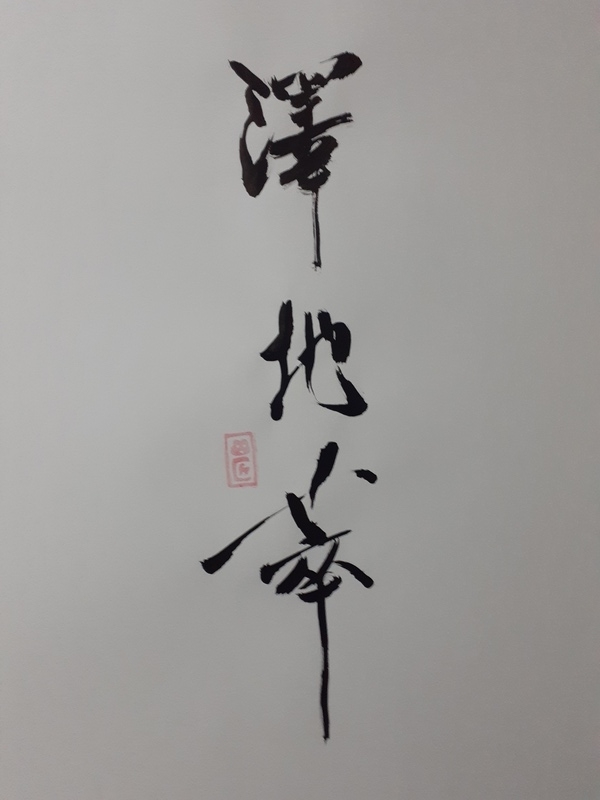 澤地萃